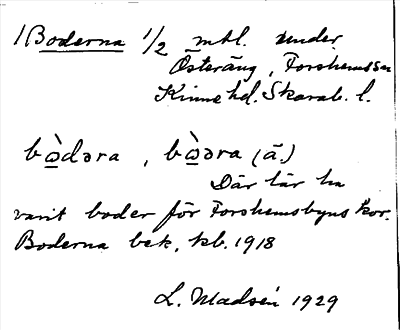 1 Boderna 1/2 mtl. under
Österäng, Forshems sn
Kinne hd. Skarab. l.
bò̲dəra , bò̲əra (ä.)
Där lär ha
varit boder för Forshemsbyns kor.
Boderna bek. kb. 1918
L. Madsén 1929